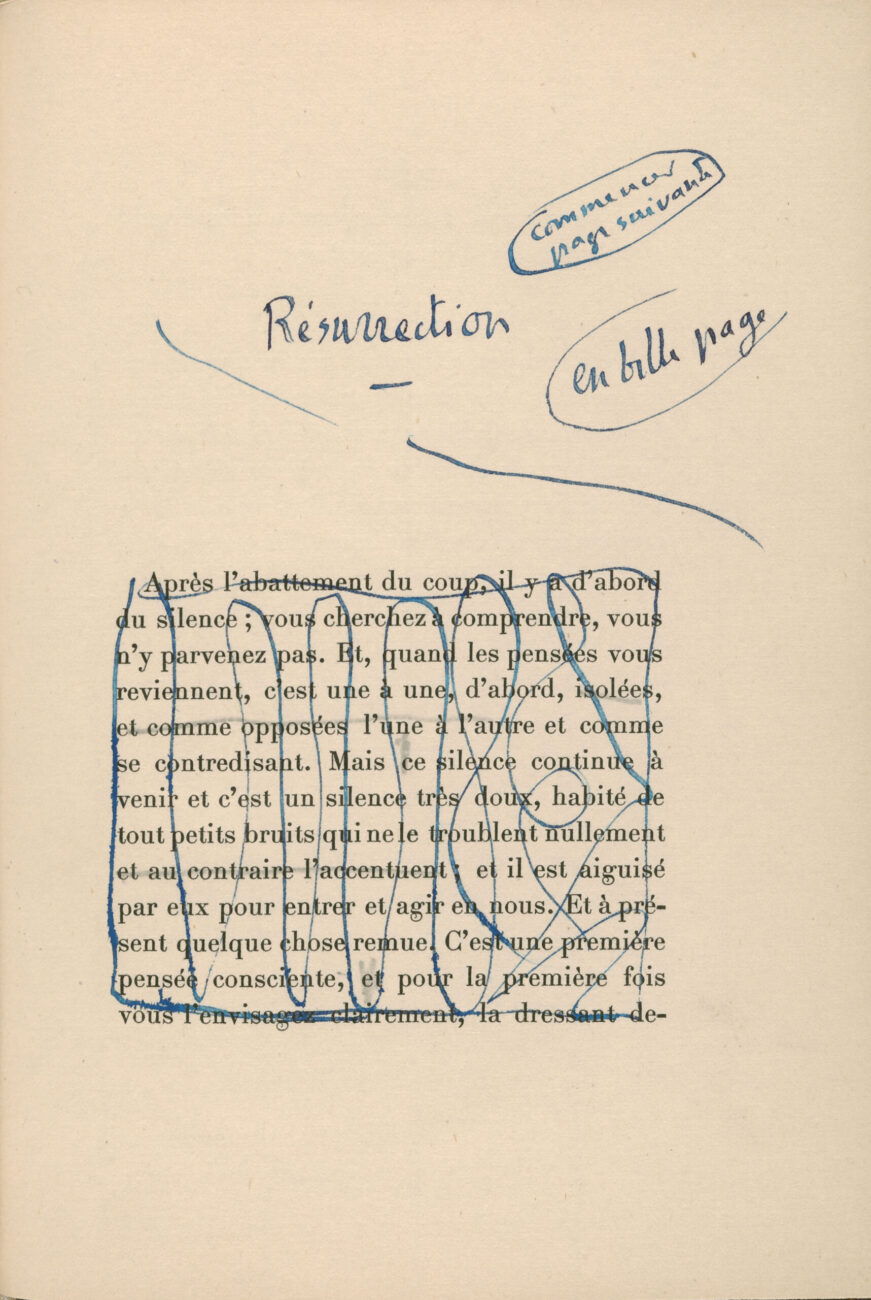 commencer
page suivante
Résurrection
en belle page
Après l'abattement du coup, il y a d'abord
du silence ; vous cherchez à comprendre, vous
n'y parvenez pas. Et, quand les pensées vous
reviennent, c'est une à une, d'abord, isolées,
et comme opposées l'une à l'autre et comme
se contredisant. Mais ce silence continue à
venir et c'est un silence très doux, habité de
tout petits bruits qui ne le troublent nullement
et au contraire l'accentuent ; et il est aiguisé
par eux pour entrer et agir en nous. Et à pré-
sent quelque chose remue. C'est une première
pensée consciente, et pour la première fois
vous l'envisagez clairement, la dressant de-